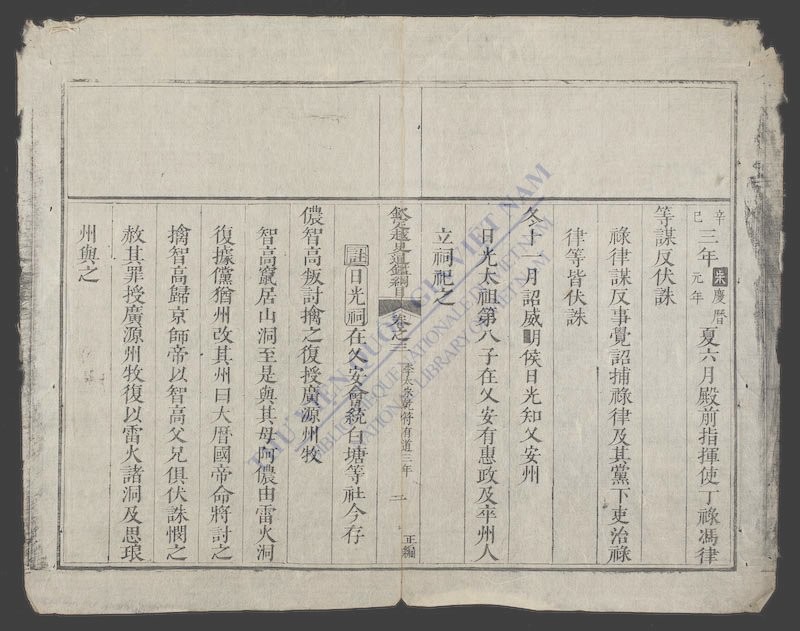 辛巳三年宋慶曆元年夏六月殿前指揮使丁祿馮律
等謀反伏誅
祿律謀反事覺詔捕祿律及其黨下吏治祿
律等皆伏誅
冬十一月詔威明侯日光知乂安州
日光太祖第八子在乂安有惠政及卒州人
立祠祀之
欽定越史通鑑綱目 卷之三 李太宗乾符有道三年 二 正編
註日光祠在乂安會統白塘等社今存
儂智高叛討擒之復授廣源州牧
智高竄居山洞至是與其母阿儂由雷火洞
復據儻猶州改其州曰大曆國帝命將討之
擒智高歸京師帝以智高父兄俱伏誅憫之
赦其罪授廣源州牧復以雷火諸洞及思琅
州與之
THƯ VIỆN QUỐC GIA VIỆT NAM
BIBLIOTHÈQUE NATIONALE DU VIETNAM
NATIONAL LIBRARY OF VIETNAM